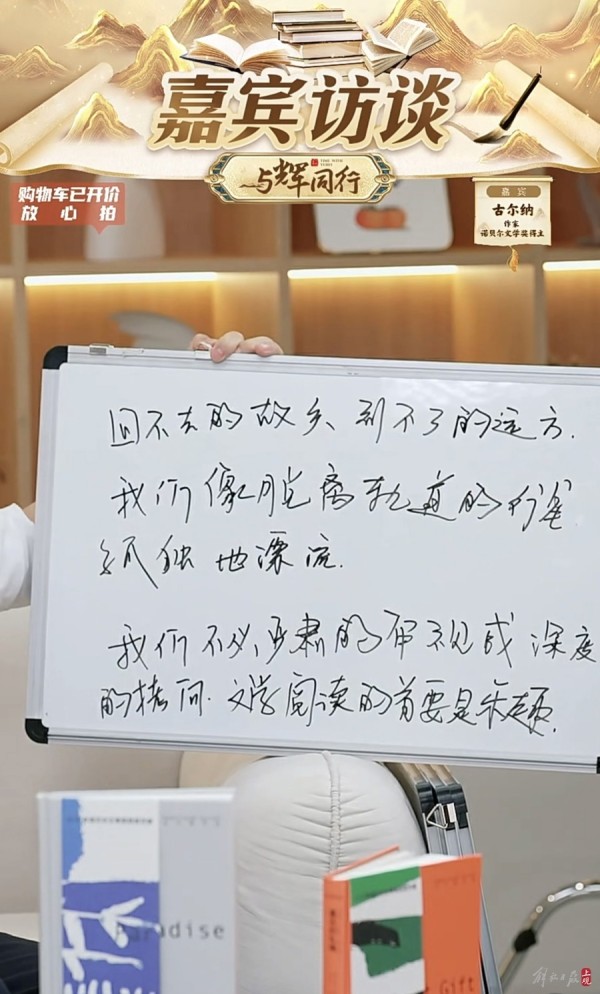 嘉宾访谈
与辉同行
TIME WITH YUHUI
购物车已开价
放心拍
嘉宾
古尔纳
作家
诺贝尔文学奖得主
回不去的故乡、到不了的远方.
我们像脱离轨道的行星
孤独地漂流.
我们不必严肃的审视或深度
的拷问.文学阅读的首要是乐趣.
Paradise
Gift
解放日报
上观